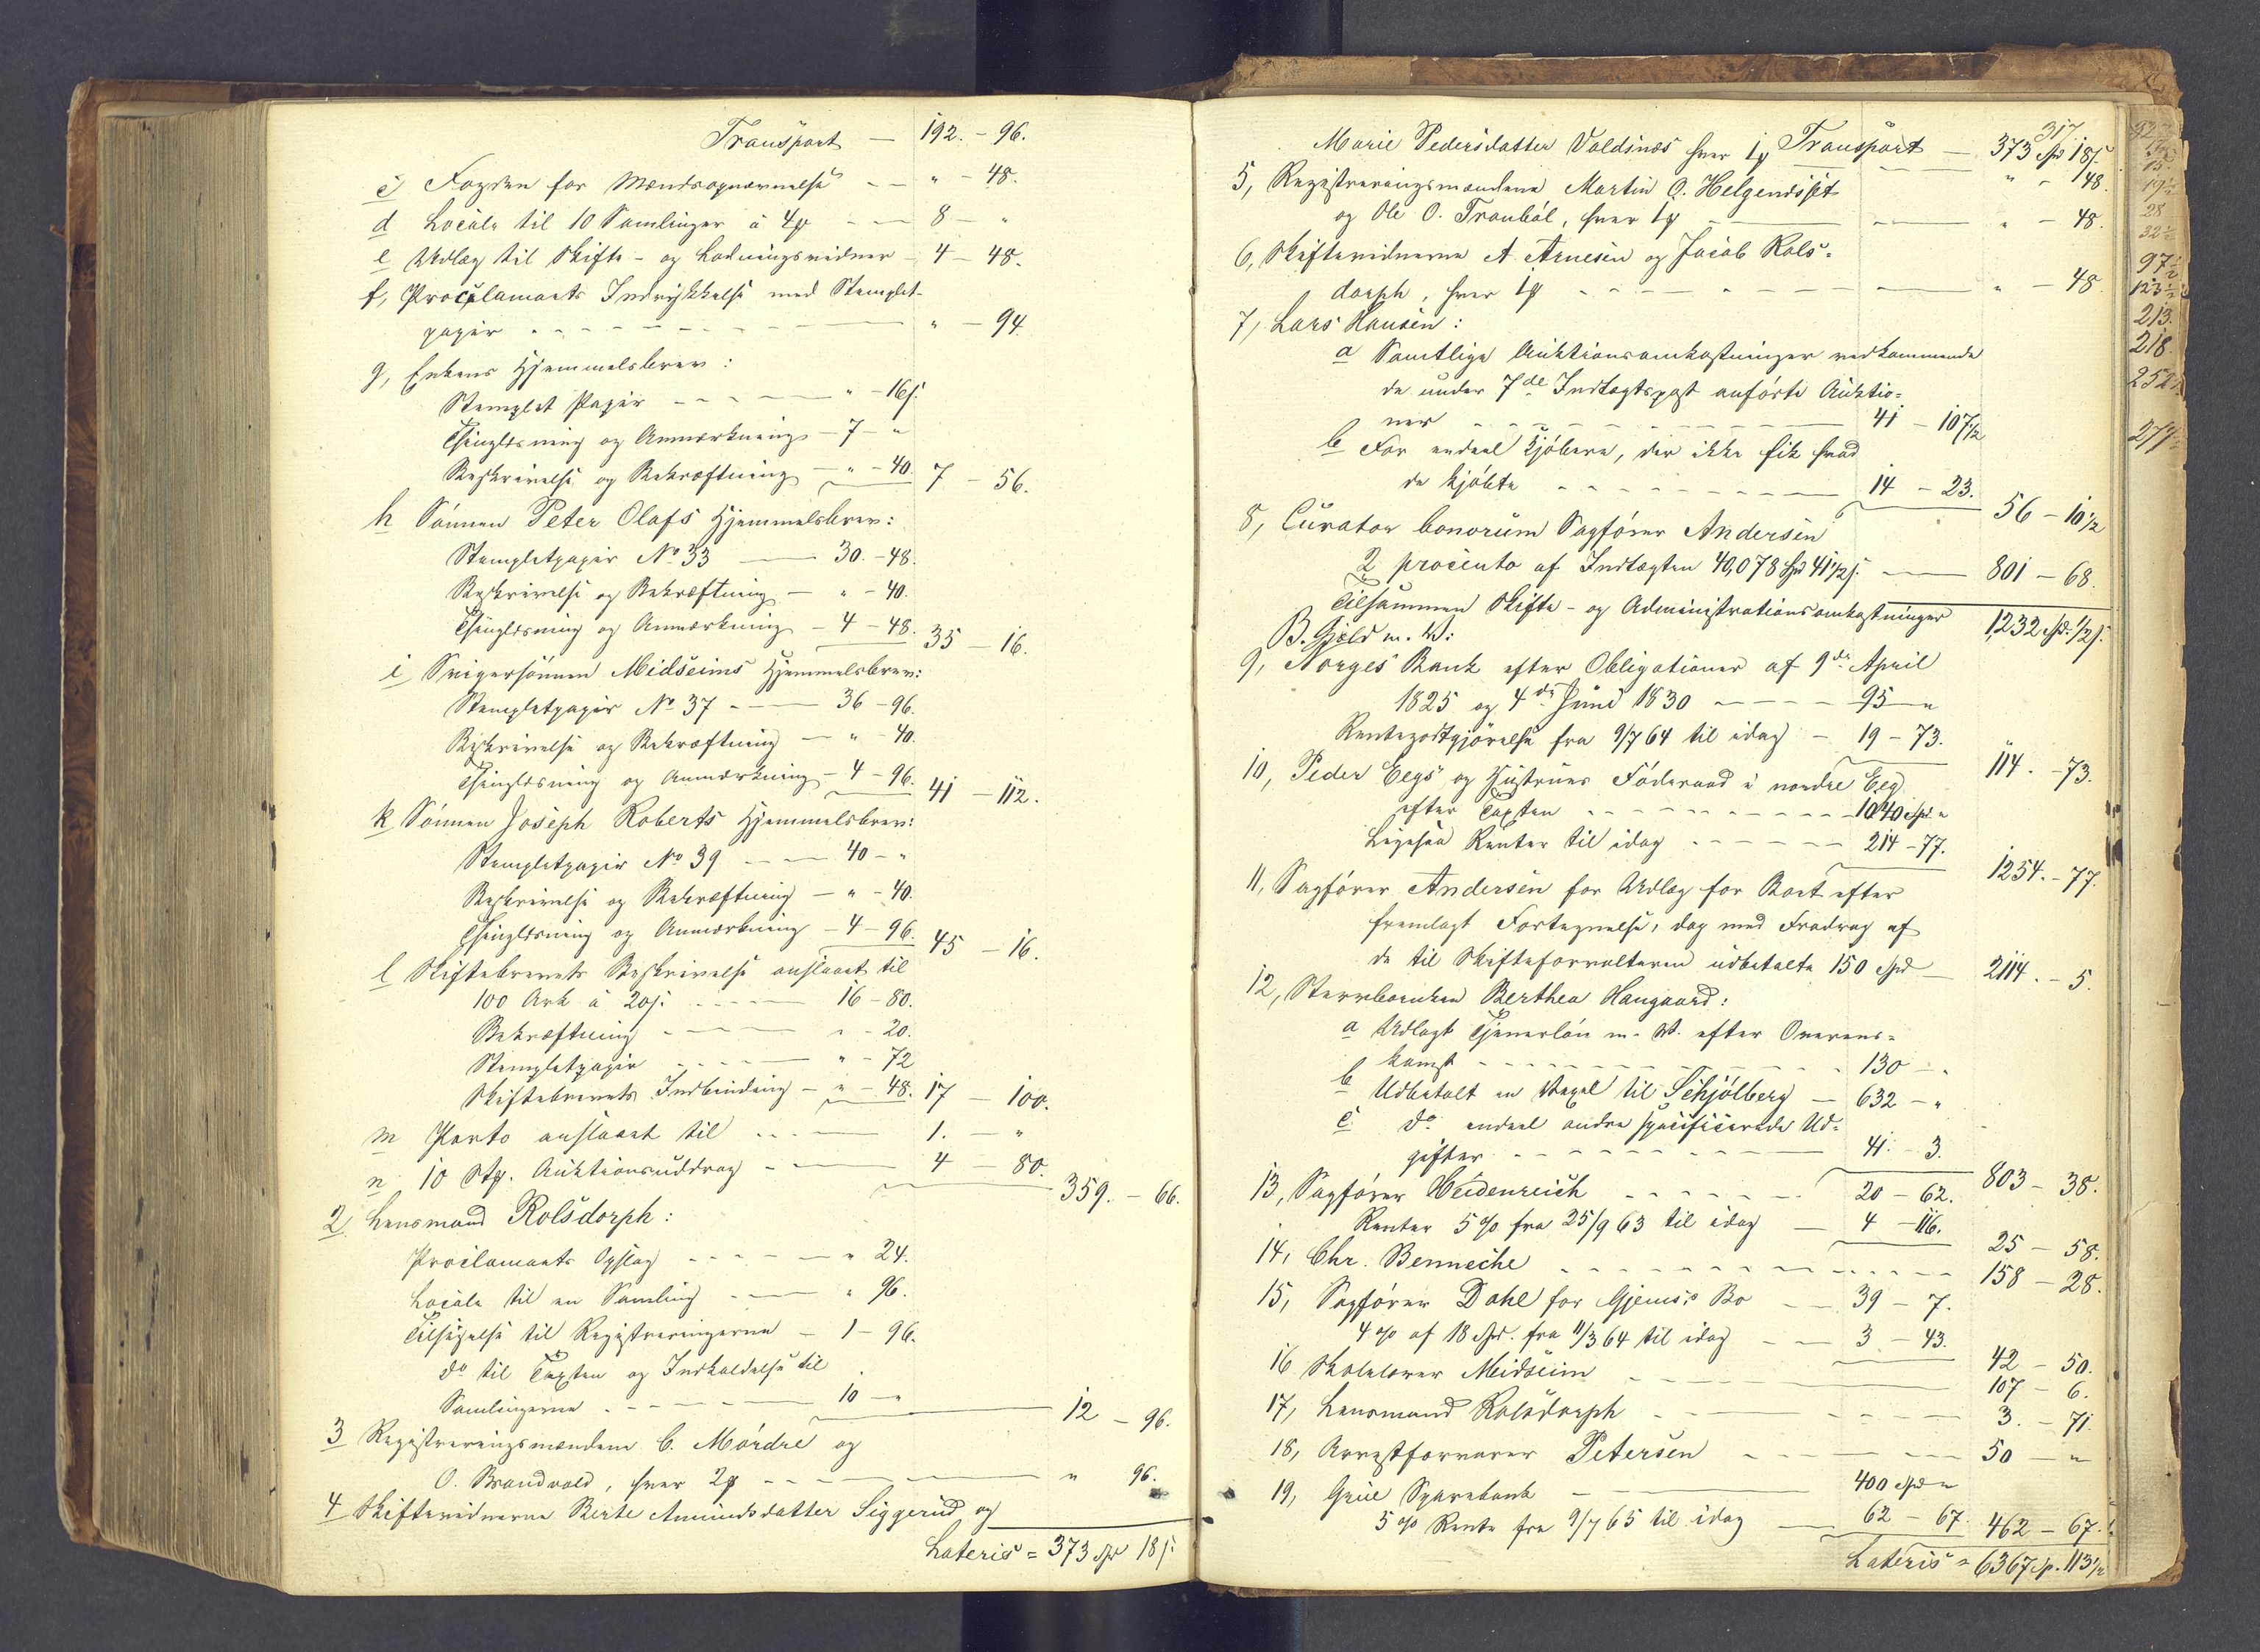 Transport — 192. - 96.
c Fogden for Mændsopnævnelse - - " - 48.
d Locale til 10 Samlinger á 4 - - 8 - "
e Udlæg til Skifte- og Lodningsvidner - 4 - 48.
f, Proclamaets Indrykkelse med Stemplet-
papir - - - " - 94.
g, Enkens Hjemmelsbrev:
Stemplet Papir - - - " - 16 s.
Thinglæsning og Anmærkning - 7 - "
Beskrivelse og Bekræftning - " - 40. 7 - 56.
h Sønnen Peter Olafs Hjemmelsbrev:
Stempletpapir No 33 — 30. - 48.
Beskrivelse og Bekræftning - " - 40.
Thinglæsning og Anmærkning - 4 - 48. 35 - 16.
i Svigersønnen Midseims Hjemmelsbrev:
Stempletpapir No 37 - — 36 - 96.
Beskrivelse og Bekræftning - " - 40.
Thinglæsning og Anmærkning - 4 - 96. 41 - 112.
k Sønnen Joseph Roberts Hjemmelsbrev:
Stempletpapir No 39 - - 40 - "
Beskrivelse og Bekræftning - " - 40.
Thinglæsning og Anmærkning - 4 - 96. 45 - 16.
l Skiftebrevets Beskrivelse anslaaet til
100 Ark á 20 s. - - - 16 - 80.
Bekræftning - - - " - 20.
Stempletpapir - - - " - 72
Skiftebrevets Indbinding - " - 48. 17 - 100.
m Porto anslaaet til - - - 1. - "
n 10 Stk. Auktionsuddrag - - 4 - 80.
359. - 66.
2 Lensmand Rolsdorph:
Proclamaets Opslag - - - " 24.
Locale til en Samling - - " 96.
Tilsigelse til Registreringerne - 1 - 96.
do til Taxten og Indkaldelse til
Samlingerne - - - 10 - "
12 - 96.
3 Registreringsmændene C. Mórdre og
O. Brandvold, hver 2 - - - " 96.
4 Skiftevidnerne Berte Amundsdatter Siggerud og
Lateris = 373 Spd 18 s.
317.
Marie Pedersdatter Voldsnæs hver 1 Transport — 373 Spd 18 s.
" - 48.
5, Registreringsmændene Martin O. Helgendsset
og Ole O. Tranból, hver 1 — " - 48.
6, Skiftevidnerne A. Arnesen og Jacob Rols-
dorph, hver 1 - - - " - 48.
7, Lars Hansen:
a Samtlige Auktionsomkostninger vedkommende
de under 7de Indtægtspost anførte Auktio-
ner - - - 41 - 107 1/2
b For endeel Kjøbere, der ikke fik hvad
de kjøbte - - - 14 - 23.
56 - 10 1/2
8, Curator bonorum Sagfører Andersen
2 procento af Indtægten 40,078 Spd 41 1/2 s. — 801 - 68.
Tilsammen Skifte- og Administrationsomkostninger 1,232 Spd. 1/2 s.
B. Gjeld m. V:
9, Norges Bank efter Obligationer af 9de April
1825 og 4de Juni 1830 - - - 95 - "
Rentegodtgjørelse fra 9/7 64 til idag - 19 - 73.
114. - 73.
10, Peder Eegs og Hustrues Føderaad i nordre Eeg
efter Taxten - - - 1040 Spd "
Ligesaa Renter til idag - - - 214 - 77.
1254. - 77.
11, Sagfører Andersen for Udlæg for Boet efter
fremlagt Fortegnelse, dog med Fradrag af
de til Skifteforvalteren udbetalte 150 Spd - 2114. - 5.
12, Stervboenken Berthea Haugaard:
a Udlagt Tjenerløn m. V. efter Overens-
komst - - - 130 - "
b Udbetalt en Vexel til Schjólberg - 632 - "
c do endeel andre specificerede Ud-
gifter - - - 41. 3.
803 - 38.
13, Sagfører Heidenreich - - - 20 - 62.
Renter 5 % fra 25/9 63 til idag - 4 - 116.
25 - 58.
14, Chr. Benneche - - - 158 - 28.
15, Sagfører Dahl for Gjems's Bo - - 39 - 7.
4 % af 18 Spd. fra 11/3 64 til idag - - 3 - 43.
42 - 50.
16 Skolelærer Meidseim - - - 107 - 6.
17, Lensmand Rolsdorph - - - 3. - 71.
18, Arrestforvarer Petersen - - - 50 - "
19, Grue Sparebank - — 400 Spd "
5 % Rente fra 9/7 65 til idag - 62 - 67. 462 - 67.
Lateris = 6367 Sp. 113 1/2
28
32 1/2
97 1/2
123 1/2
213.
218.